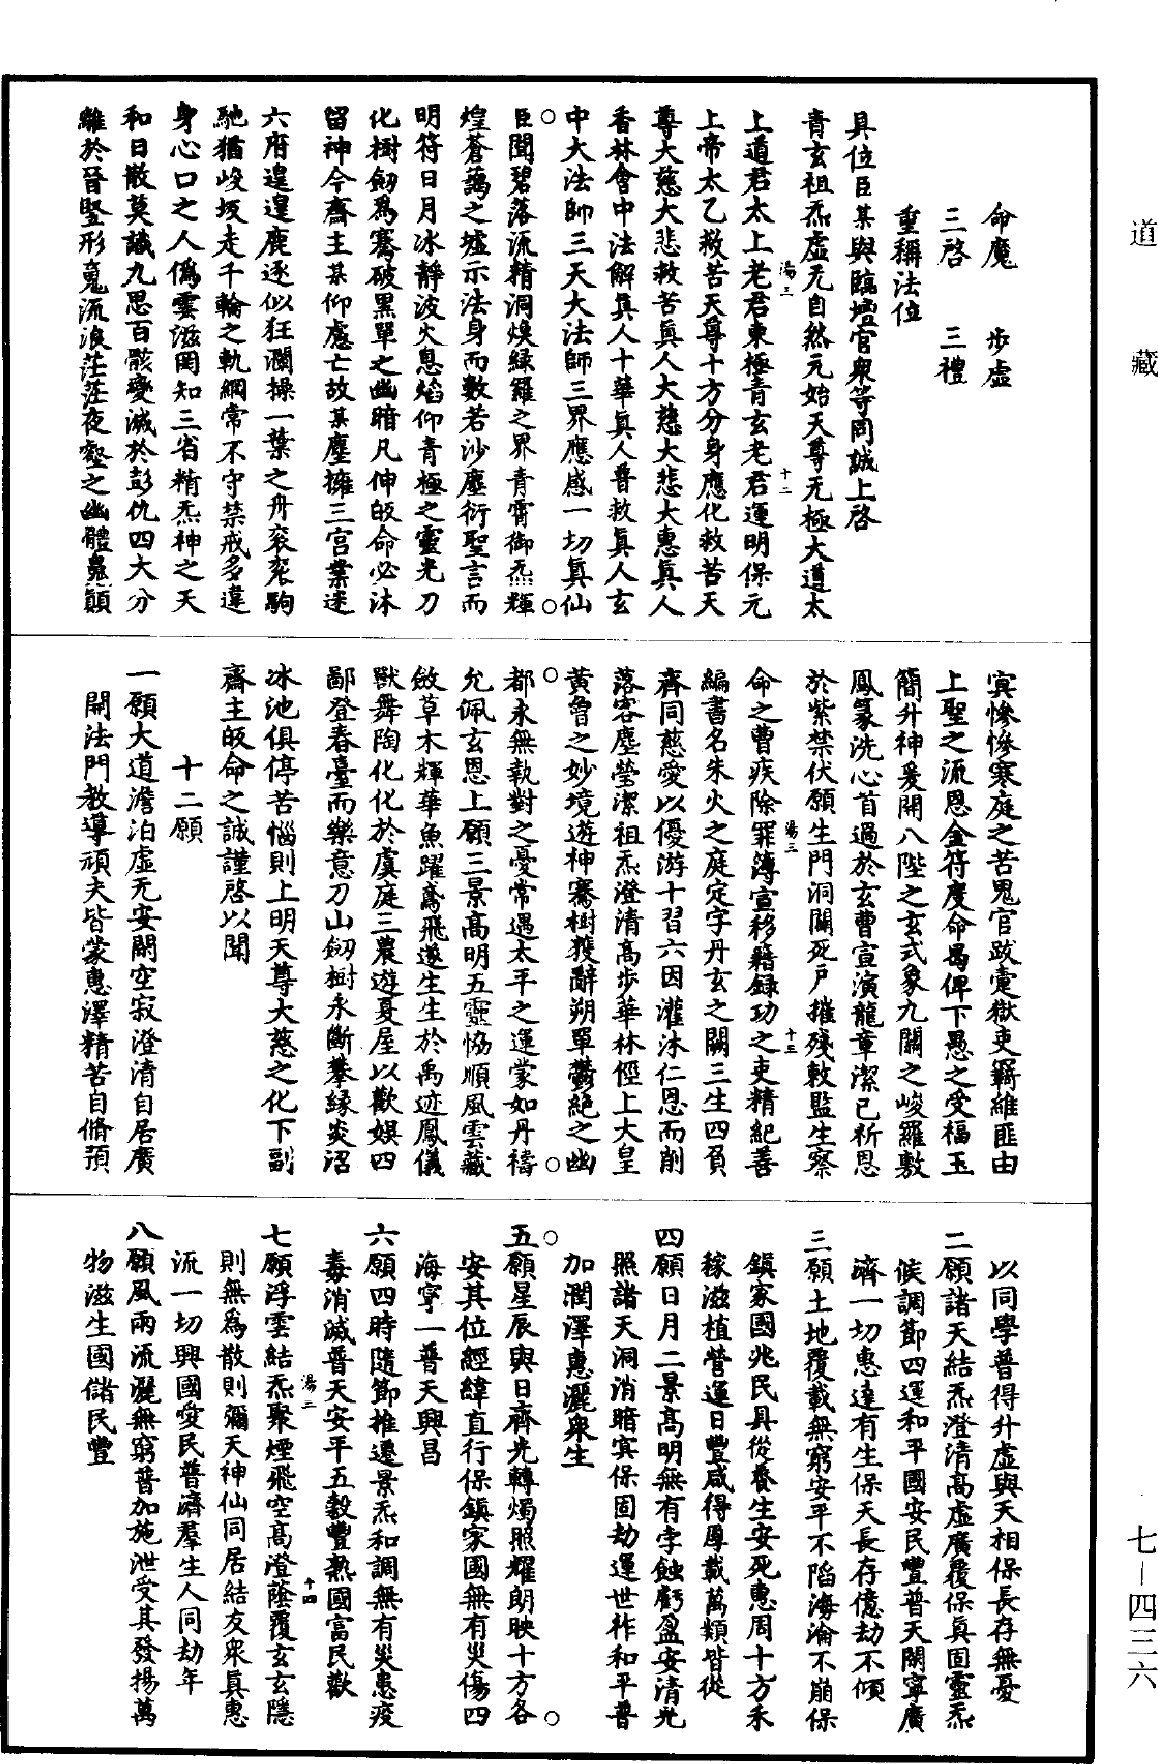 道藏
七—四三六
命魔　步虛
三啓　三禮
重稱法位
具位臣某與臨壇官衆等同誠上啓
青玄祖炁虛无自然元始天尊无極大道太
湯三
十二
上道君太上老君東極青玄老君運明保元
上帝太乙救苦天尊十方分身應化救苦天
尊大慈大悲救苦眞人大慈大悲大惠眞人
香林會中法解眞人十華眞人普救眞人玄
中大法師三天大法師三界應感一切眞仙
臣聞碧落流精洞煥緑羅之界青霄御炁輝
煌蒼藹之墟示法身而數若沙塵衍聖言而
明符日月冰靜波火息焰仰青極之靈光刀
化樹劒爲騫破黑單之幽暗凡伸皈命必沐
留神今齋主某仰慮亡故某塵擁三宮業迷
六府遑遑鹿逐似狂瀾操一葉之舟衮衮駒
馳猶峻坂走千輪之軌綱常不守禁戒多違
身心口之人僞雲滋罔知三省精炁神之天
和日散莫識九思百骸變滅於彭仇四大分
離於晉竪形䰟流浪茫茫夜壑之幽體䰟顚
㝠慘慘寒庭之苦鬼官跋疐獄吏羈維匪由
上聖之流恩金符度命曷俾下愚之受福玉
簡升神爰開八陛之玄式象九關之峻羅敷
鳳篆洗心首過於玄曹宣演龍章潔己祈恩
於紫禁伏願生門洞闢死戶摧殘敕監生察
湯三
十三
命之曹疾除罪簿宣移籍録功之吏精紀善
編書名朱火之庭定字丹玄之闕三生四負
齊同慈愛以優游十習六因灌沐仁恩而削
落客塵瑩潔祖炁澄清高步華林徑上大皇
黃曾之妙境遊神騫樹獲辭朔單鬱絶之幽
都永無執對之憂常遇太平之運蒙如丹禱
允佩玄恩上願三景高明五靈恊順風雲藏
斂草木輝華魚躍鳶飛遂生生於禹迹鳳儀
獸舞陶化化於虞庭三農遊夏屋以歡娛四
鄙登春臺而樂意刀山劒樹永斷攀縁炎沼
冰池俱停苦惱則上明天尊大慈之化下副
齋主皈命之誠謹啓以聞
十二願
一願大道澹泊虛无安閑空寂澄清自居廣
開法門教導頑夫皆蒙惠澤精苦自脩預
以同學普得升虛與天相保長存無憂
二願諸天結炁澄清高虛廣覆保眞固靈炁
候調節四運和平國安民豐普天閑寧廣
濟一切惠達有生保天長存億劫不傾
三願土地覆載無窮安平不陷海淪不崩保
鎭家國兆民具從養生安死惠周十方禾
稼滋植營運日豐咸得厚載萬類皆從
四願日月二景高明無有孛蝕虧盈安清光
照諸天洞消暗㝠保固劫運世祚和平普
加潤澤惠灑衆生
五願星辰與日齊光轉燭照耀朗映十方各
安其位經緯直行保鎭家國無有災傷四
海寧一普天興昌
六願四時隨節推遷景炁和調無有災患疫
毒消滅普天安平五穀豐熟國富民歡
湯三
十四
七願浮雲結炁聚煙飛空高澄蔭覆玄玄隱
則無爲散則彌天神仙同居結友衆眞惠
流一切興國愛民普濟羣生人同劫年
八願風雨流灑無窮普加施泄受其發揚萬
物滋生國儲民豐